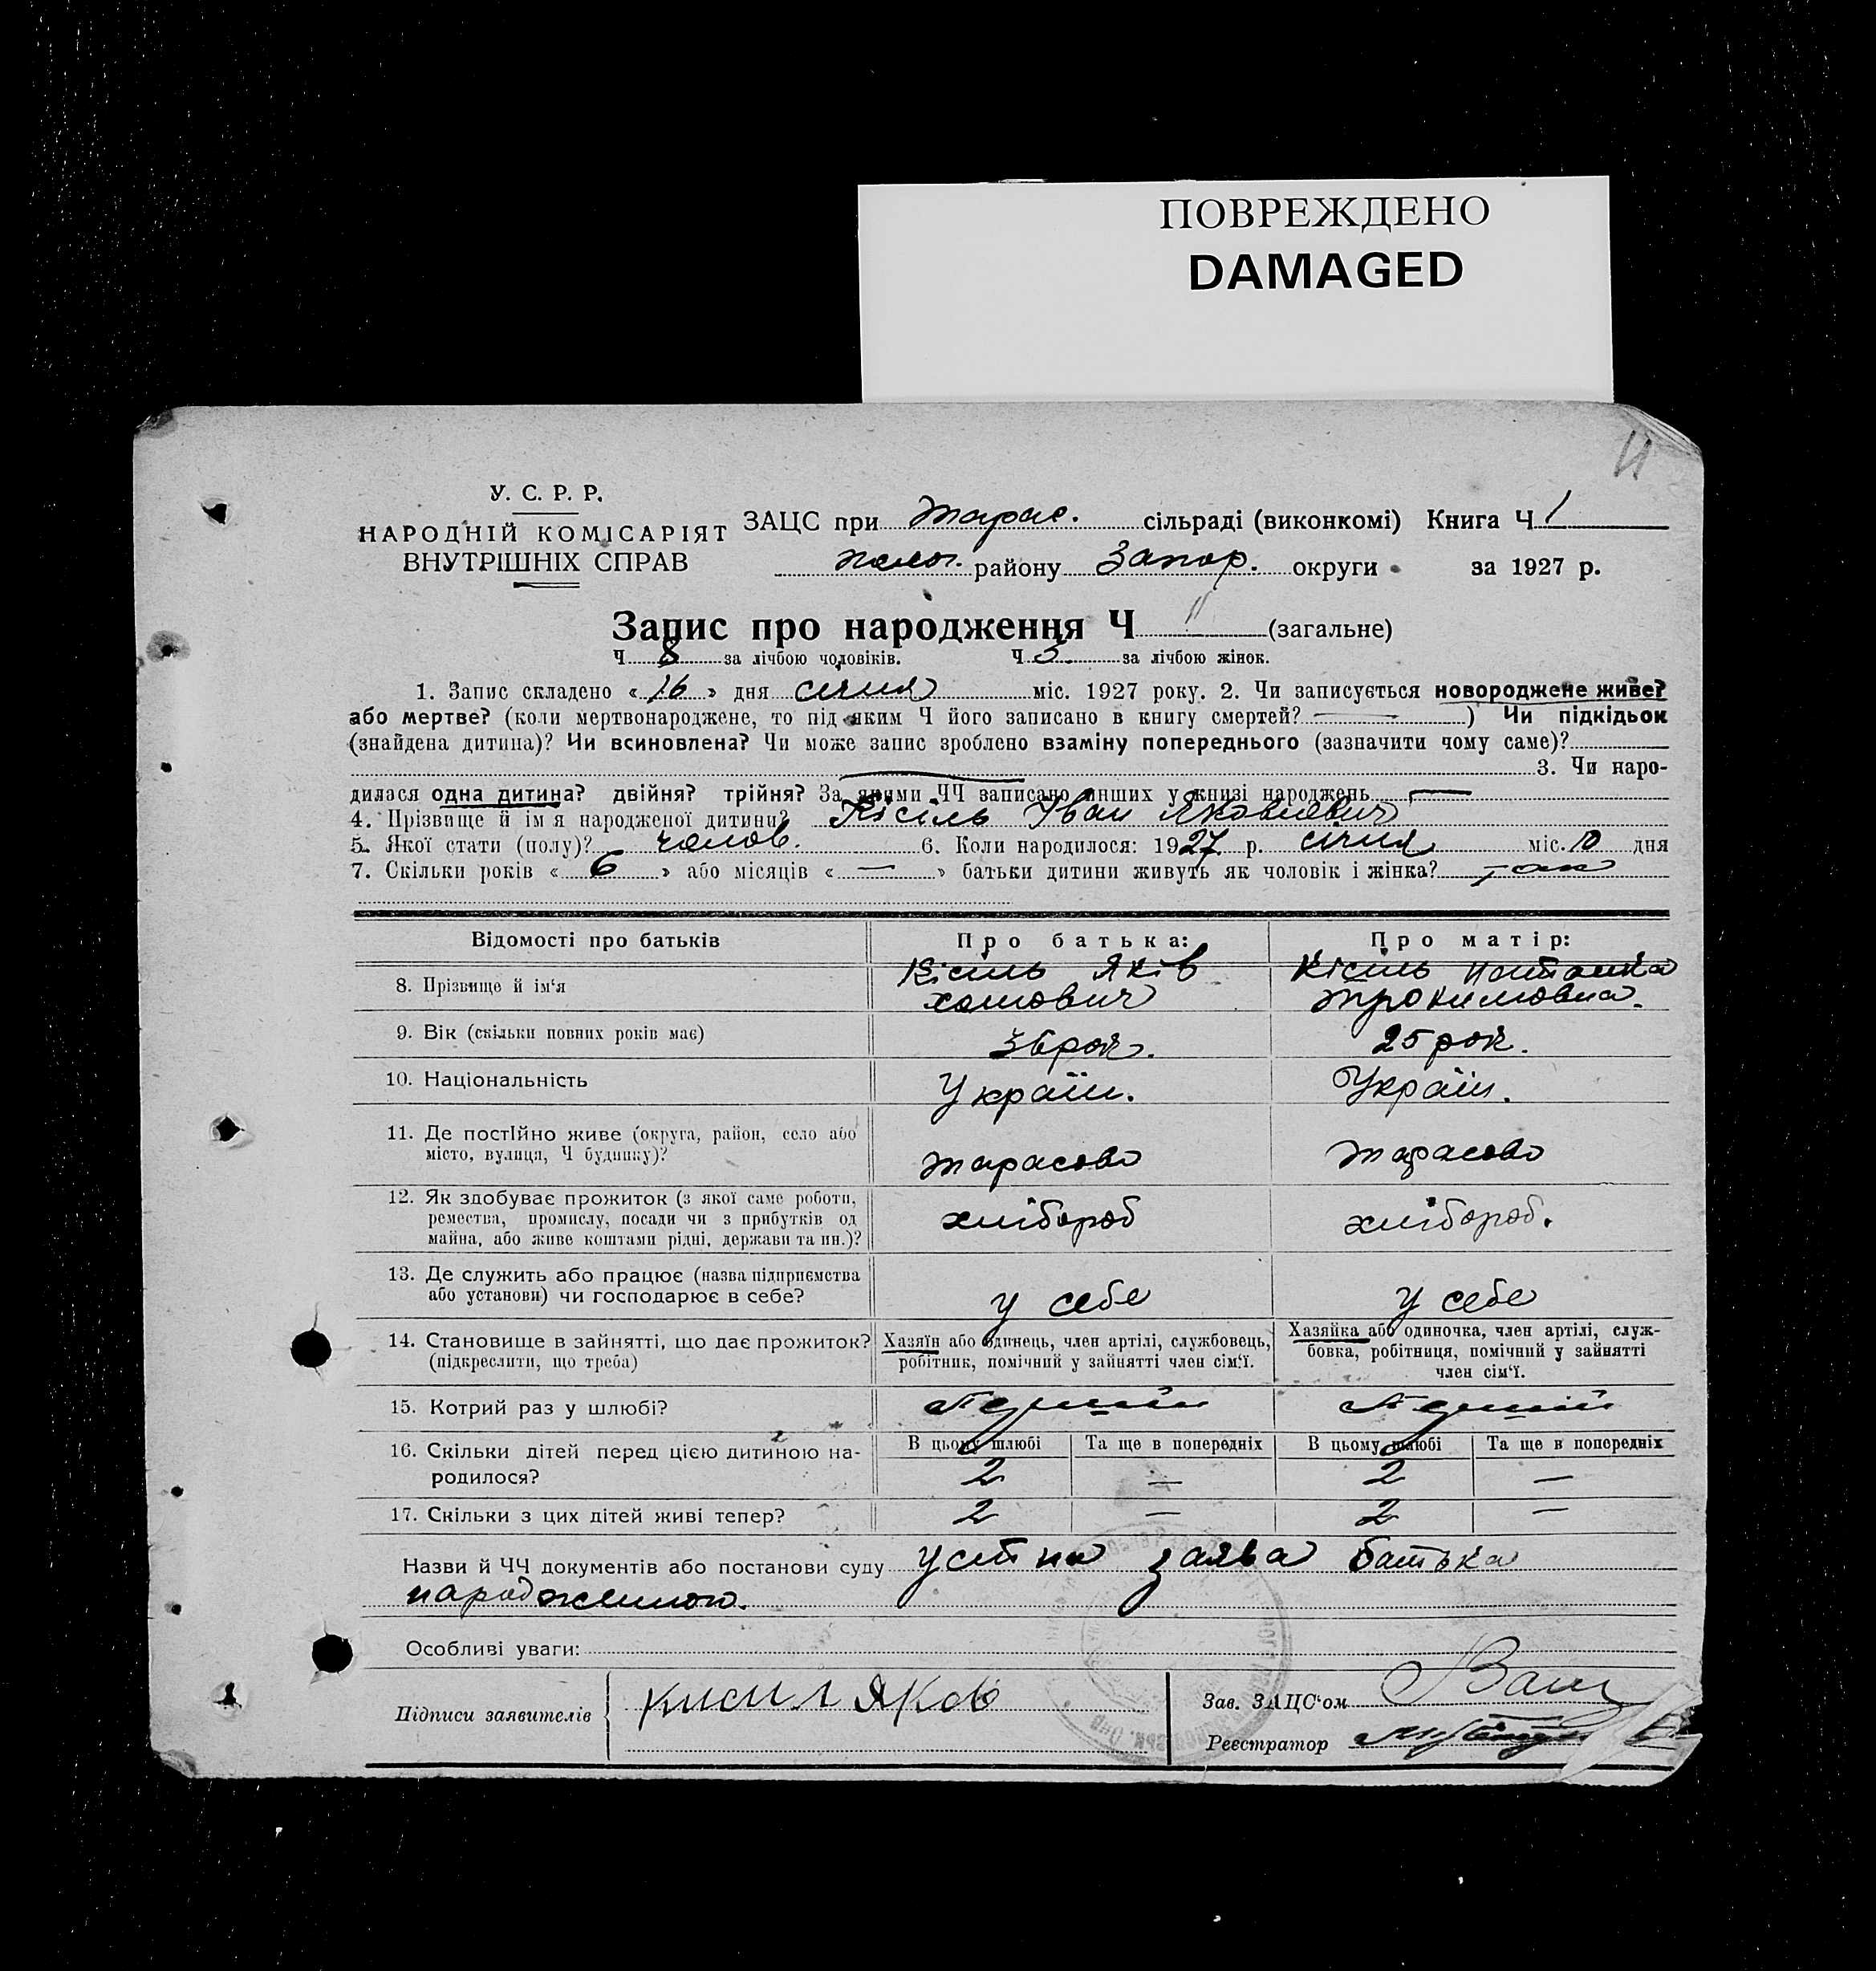 ПОВРЕЖДЕНО
DAMAGED
11
У. С. Р. Р.
НАРОДНІЙ КОМІСАРІЯТ
ВНУТРІШНІХ СПРАВ
ЗАЦС при Тарас. сільраді (виконкомі) Книга Ч 1
Полог. району Запор. округи за 1927 р.
Запис про народження Ч 11 (загальне)
Ч 8 за лічбою чоловіків. Ч 3 за лічбою жінок.
1. Запис складено «16» дня січня міс. 1927 року. 2. Чи записується новороджене живе?
або мертве? (коли мертвонароджене, то під яким Ч його записано в книгу смертей? —) Чи підкідьок
(знайдена дитина)? Чи всиновлена? Чи може запис зроблено взаміну попереднього (зазначити чому саме)?
— 3. Чи наро-
дилася одна дитина? двійня? трійня? За якими ЧЧ записано инших у книзі народжень —
4. Прізвище й ім'я народженої дитини? Кісіль Іван Яковлевич
5. Якої стати (полу)? чолов. 6. Коли народилося: 1927 р. січня міс. 10 дня
7. Скільки років «6» або місяців «—» батьки дитини живуть як чоловік і жінка? так
Відомості про батьків Про батька: Про матір:
8. Прізвище й ім'я Кісіль Яків Кісіль
Трохимовна.
9. Вік (скільки повних років має) 36 рок. 25 рок.
10. Національність Україн. Україн.
11. Де постійно живе (округа, район, село або
місто, вулиця, Ч будинку)? Тарасово Тарасово
12. Як здобуває прожиток (з якої саме роботи,
ремества, промислу, посади чи з прибутків од
майна, або живе коштами рідні, держави та ин.)? хлібороб хлібороб.
13. Де служить або працює (назва підприємства
або установи) чи господарює в себе? у себе у себе
14. Становище в зайнятті, що дає прожиток? Хазяїн або одинець, член артілі, службовець, Хазяйка або одиночка, член артілі, служ-
(підкреслити, що треба) робітник, помічний у зайнятті член сім'ї. бовка, робітниця, помічний у зайнятті
член сім'ї.
15. Котрий раз у шлюбі? Перший Перший
16. Скільки дітей перед цією дитиною на- В цьому шлюбі Та ще в попередніх В цьому шлюбі Та ще в попередніх
родилося? 2 — 2 —
17. Скільки з цих дітей живі тепер? 2 — 2 —
Назви й ЧЧ документів або постанови суду устна заява батька
народженого.
Особливі уваги:
Підписи заявителів Кисил Яков Зав. ЗАЦС'ом
Реєстратор